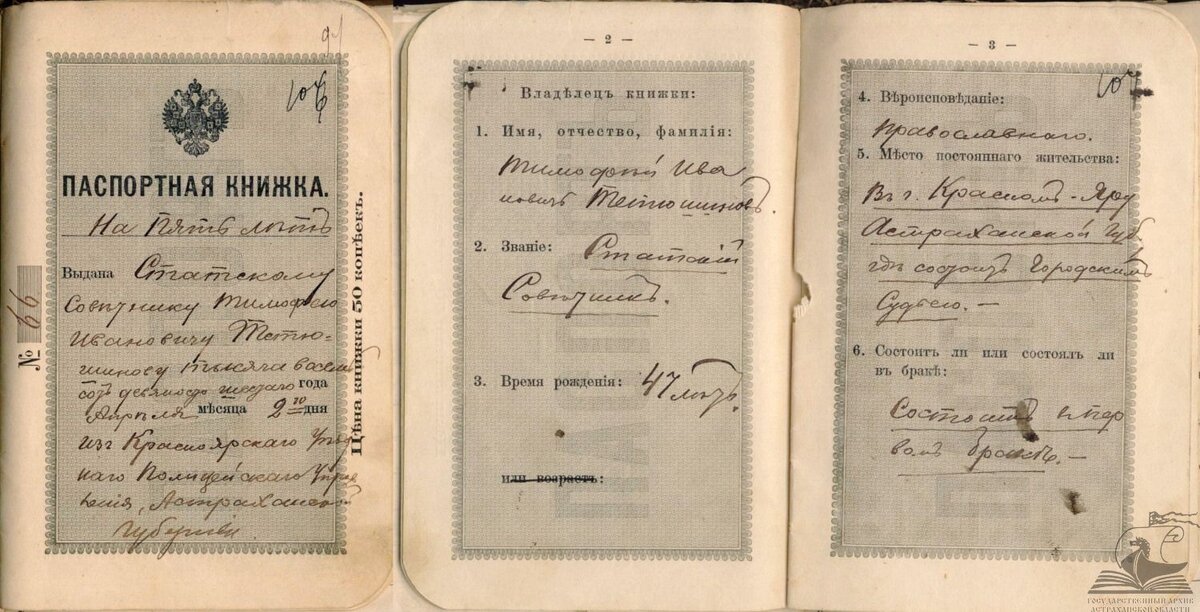 106
ПАСПОРТНАЯ КНИЖКА.
На Пять лѣтъ
Выдана Статскому
Совѣтнику Тимофею
Ивановичу Тетю-
шинову тысяча восемь
сотъ девяносто шестаго года
Апрѣля мѣсяца 2го дня
изъ Красноярскаго Уѣзд
наго Полицейскаго Управ
ленія, Астраханской
Губерніи.
№ 66
Цѣна книжки 50 копѣекъ.
— 2 —
Владѣлецъ книжки:
1. Имя, отчество, фамилія:
Тимофей Ива
новичъ Тетюшиновъ.
2. Званіе: Статскій
Совѣтникъ.
3. Время рожденія: 47 лѣтъ.
или возрастъ:
— 3 —
107
4. Вѣроисповѣданіе:
Православнаго.
5. Мѣсто постояннаго жительства:
Въ г. Красномъ-Яру
Астраханской Губ.
гдѣ состоитъ Городскимъ
Судьею. —
6. Состоитъ ли или состоялъ ли
въ бракѣ:
Состоитъ въ пер
вомъ бракѣ. —
ГОСУДАРСТВЕННЫЙ АРХИВ
АСТРАХАНСКОЙ ОБЛАСТИ